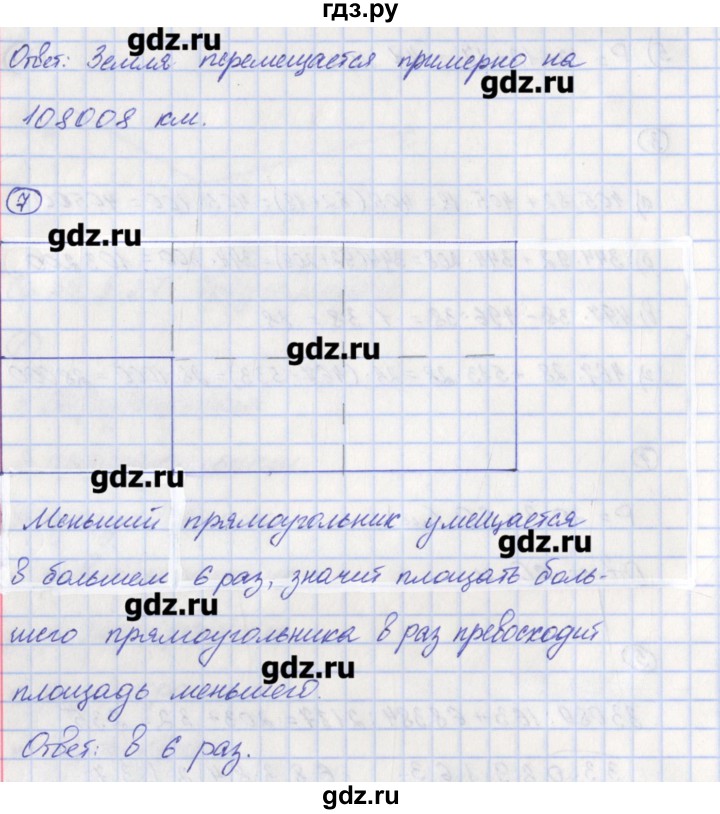 гдз.ру
gdz.ru
Ответ: Земля перемещается примерно на
gdz.ru
108008 км.
7
gdz.ru
gdz.ru
gdz.ru
Меньший прямоугольник умещается
gdz.ru
в большем 6 раз, значит площать боль-
gdz.ru
шего прямоугольника в раз превосходит
gdz.ru
площадь меньшего.
Ответ: в 6 раз.
gdz.ru
gdz.ru